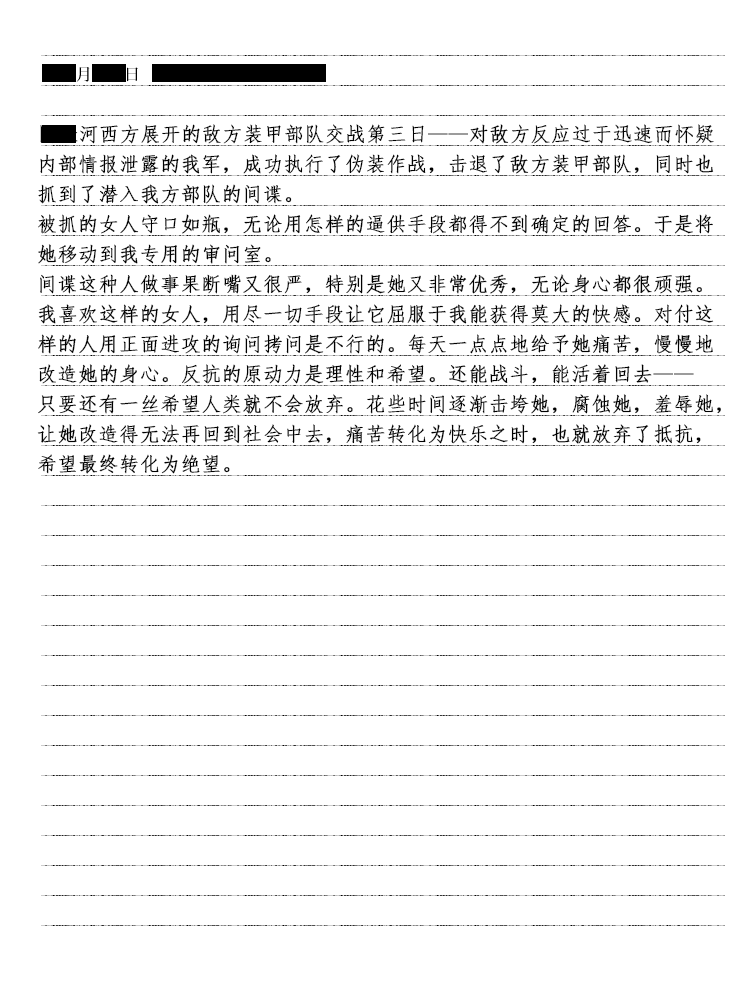 月 日
河西方展开的敌方装甲部队交战第三日——对敌方反应过于迅速而怀疑
内部情报泄露的我军，成功执行了伪装作战，击退了敌方装甲部队，同时也
抓到了潜入我方部队的间谍。
被抓的女人守口如瓶，无论用怎样的逼供手段都得不到确定的回答。于是将
她移动到我专用的审问室。
间谍这种人做事果断嘴又很严，特别是她又非常优秀，无论身心都很顽强。
我喜欢这样的女人，用尽一切手段让它屈服于我能获得莫大的快感。对付这
样的人用正面进攻的询问拷问是不行的。每天一点点地给予她痛苦，慢慢地
改造她的身心。反抗的原动力是理性和希望。还能战斗，能活着回去——
只要还有一丝希望人类就不会放弃。花些时间逐渐击垮她，腐蚀她，羞辱她，
让她改造得无法再回到社会中去，痛苦转化为快乐之时，也就放弃了抵抗，
希望最终转化为绝望。